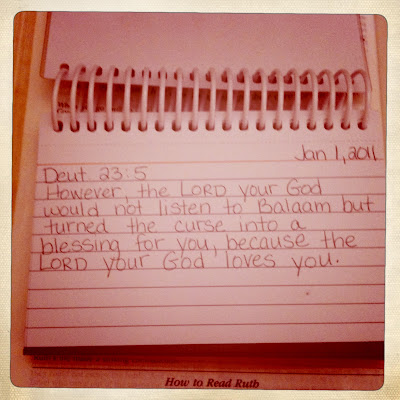 Jan 1, 2011
Deut 23:5
However, the LORD your God
would not listen to Balaam but
turned the curse into a
blessing for you, because the
LORD your God loves you.
How to Read Ruth